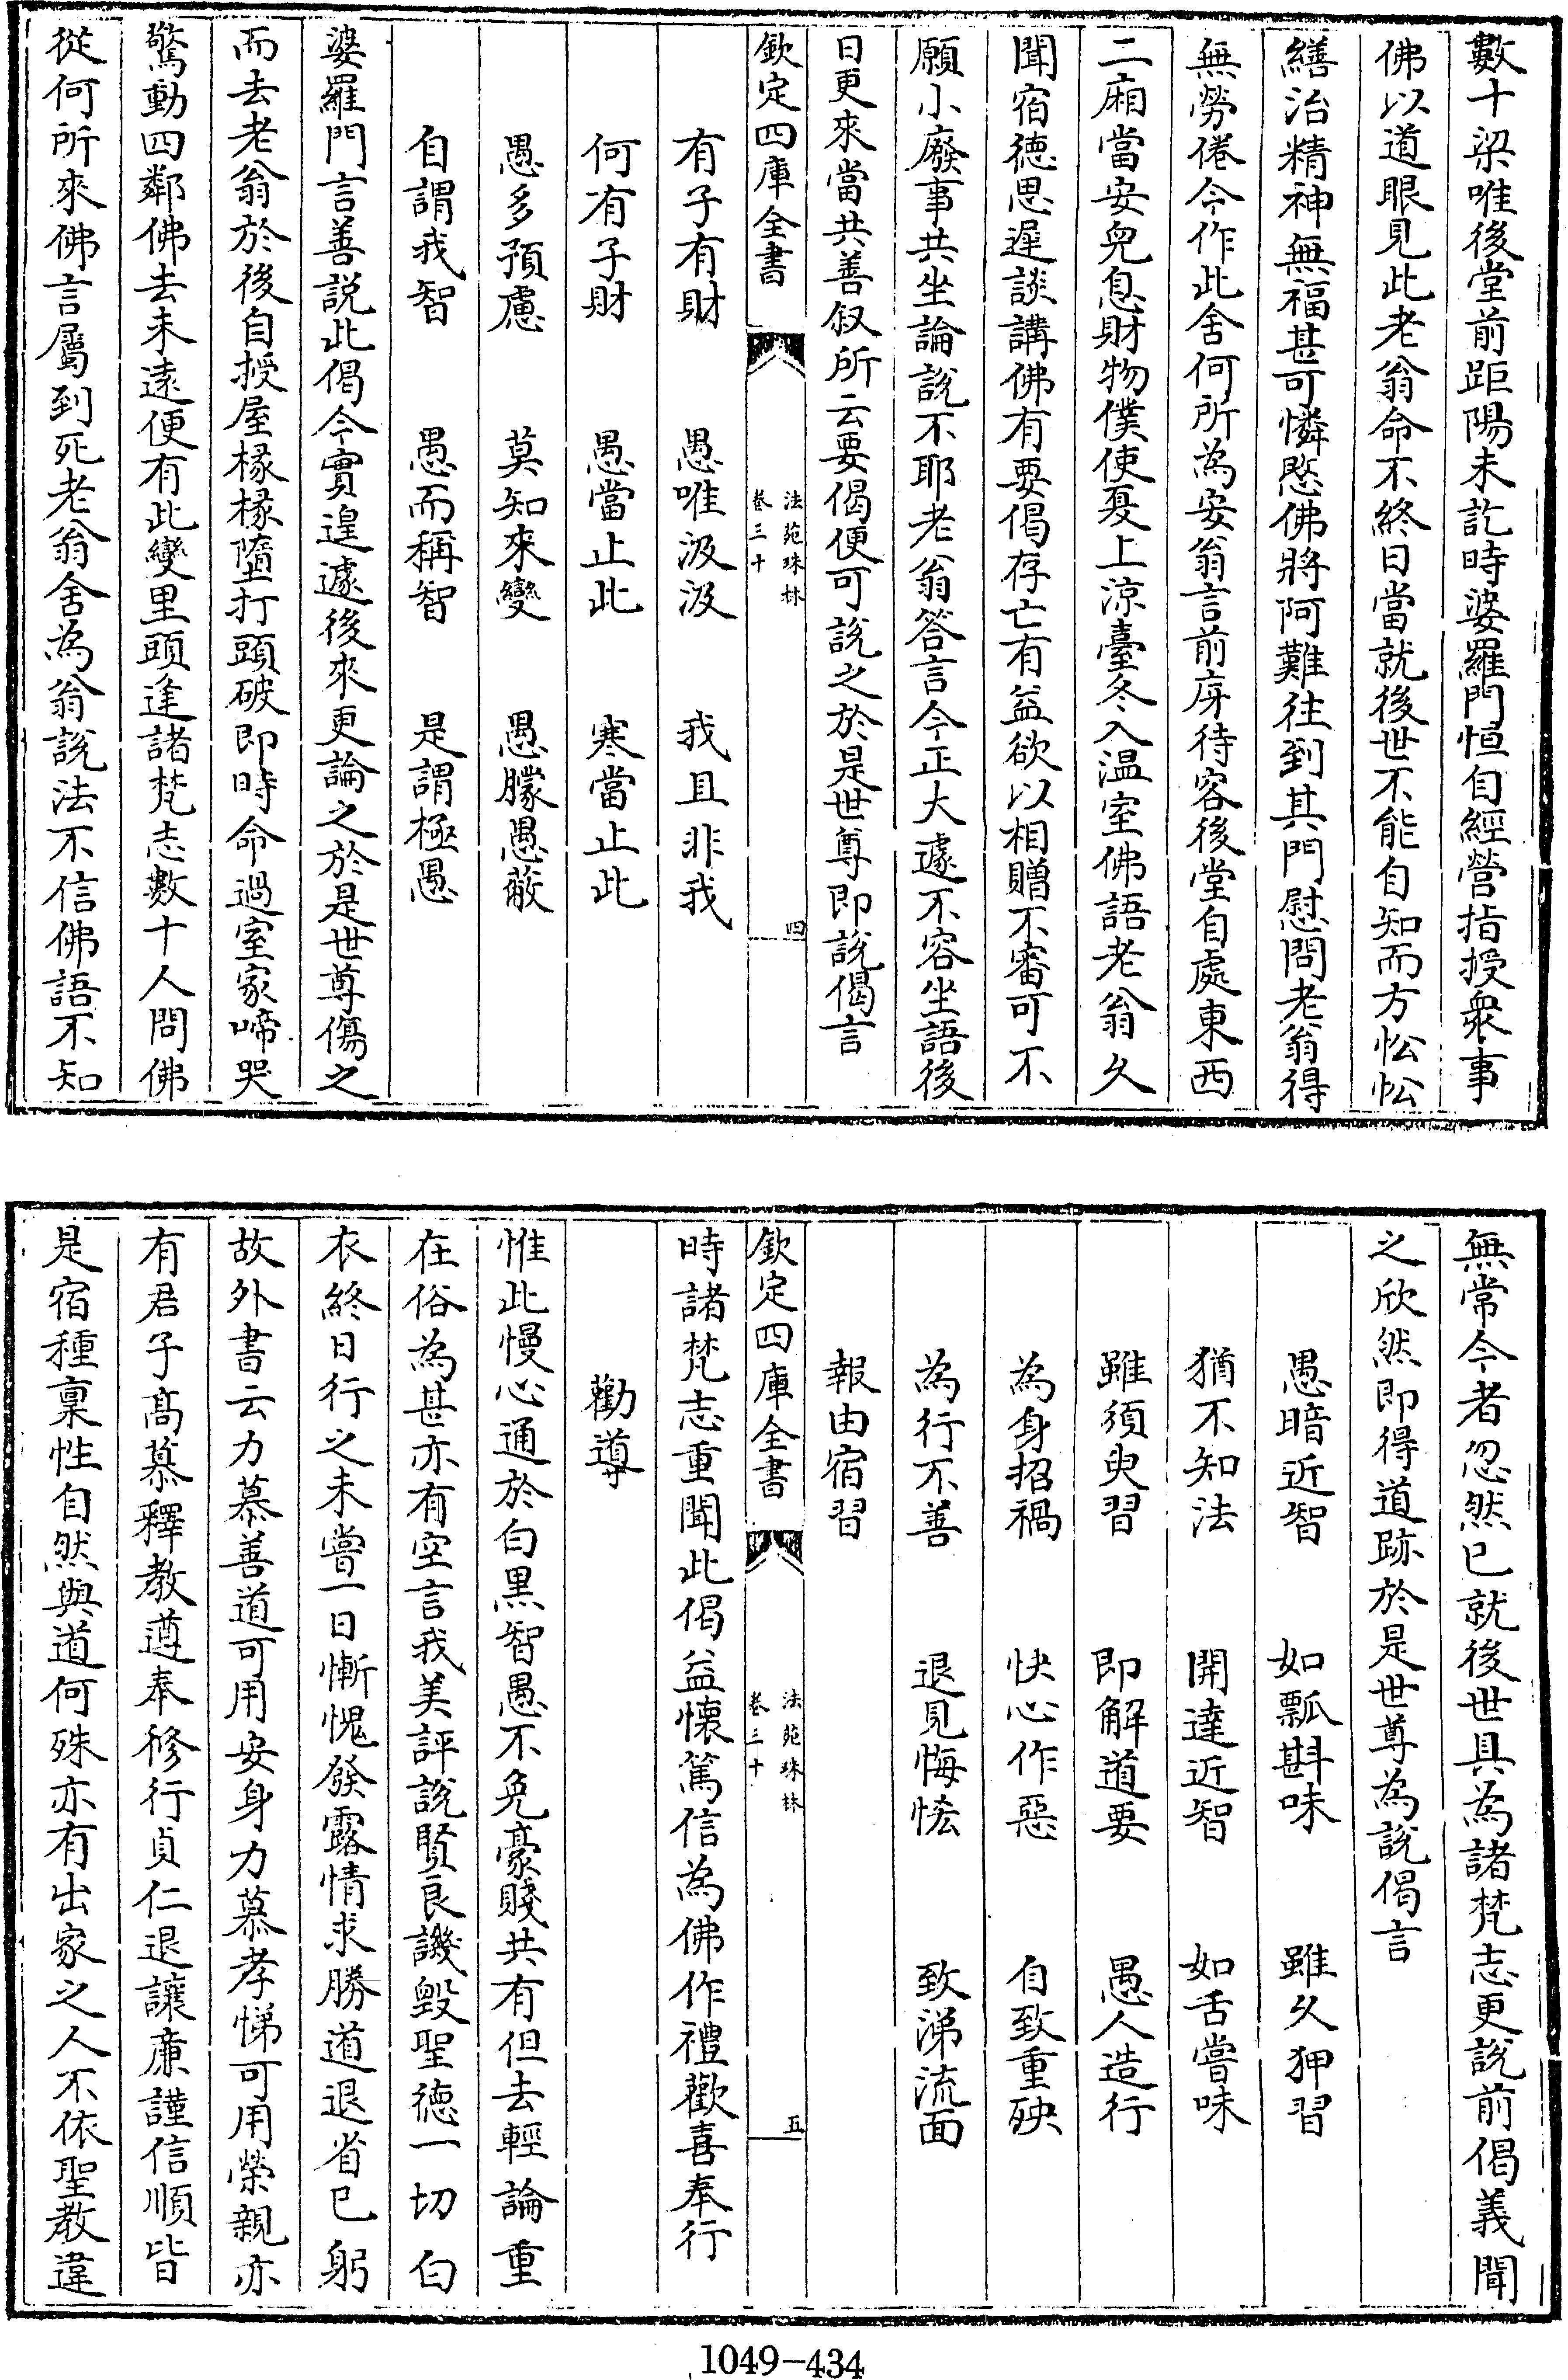 數十梁唯後堂前距陽未訖時婆羅門恒自經營指授衆事
佛以道眼見此老翁命不終日當就後世不能自知而方忪忪
繕治精神無福甚可憐愍佛將阿難往到其門慰問老翁得
無勞倦今作此舍何所為安翁言前庌待客後堂自處東西
二廂當安兒息財物僕使夏上涼臺冬入温室佛語老翁久
聞宿徳思遲談講佛有要偈存亡有益欲以相贈不審可不
願小廢事共坐論說不耶老翁答言今正大遽不容坐語後
日更來當共善叙所云要偈便可説之於是世尊即說偈言
欽定四庫全書
法苑珠林
卷三十
四
有子有財　愚唯汲汲　我且非我
何有子財　愚當止此　寒當止此
愚多預慮　莫知來變　愚朦愚蔽
自謂我智　愚而稱智　是謂極愚
婆羅門言善説此偈今實遑遽後來更論之於是世尊傷之
而去老翁於後自授屋椽椽墮打頭破即時命過室家啼哭
驚動四鄰佛去未遠便有此變里頭逢諸梵志數十人問佛
從何所來佛言屬到死老翁舍為翁說法不信佛語不知
無常今者忽然已就後世具為諸梵志更說前偈義聞
之欣然即得道跡於是世尊為說偈言
愚暗近智　如瓢斟味　雖久狎習
猶不知法　開達近智　如舌嘗味
雖須臾習　即解道要　愚人造行
為身招禍　快心作惡　自致重殃
為行不善　退見悔悋　致涕流面
報由宿習
欽定四庫全書
法苑珠林
卷三十
五
時諸梵志重聞此偈益懷篤信為佛作禮歡喜奉行
勸導
惟此慢心通於白黒智愚不免豪賤共有但去輕論重
在俗為甚亦有空言我美評說賢良譏毀聖徳一切白
衣終日行之未嘗一日慚愧發露情求勝道退省已躬
故外書云力慕善道可用安身力慕孝悌可用榮親亦
有君子髙慕釋教遵奉修行貞仁退讓亷謹信順皆
是宿種稟性自然與道何殊亦有出家之人不依聖教違
1049-434